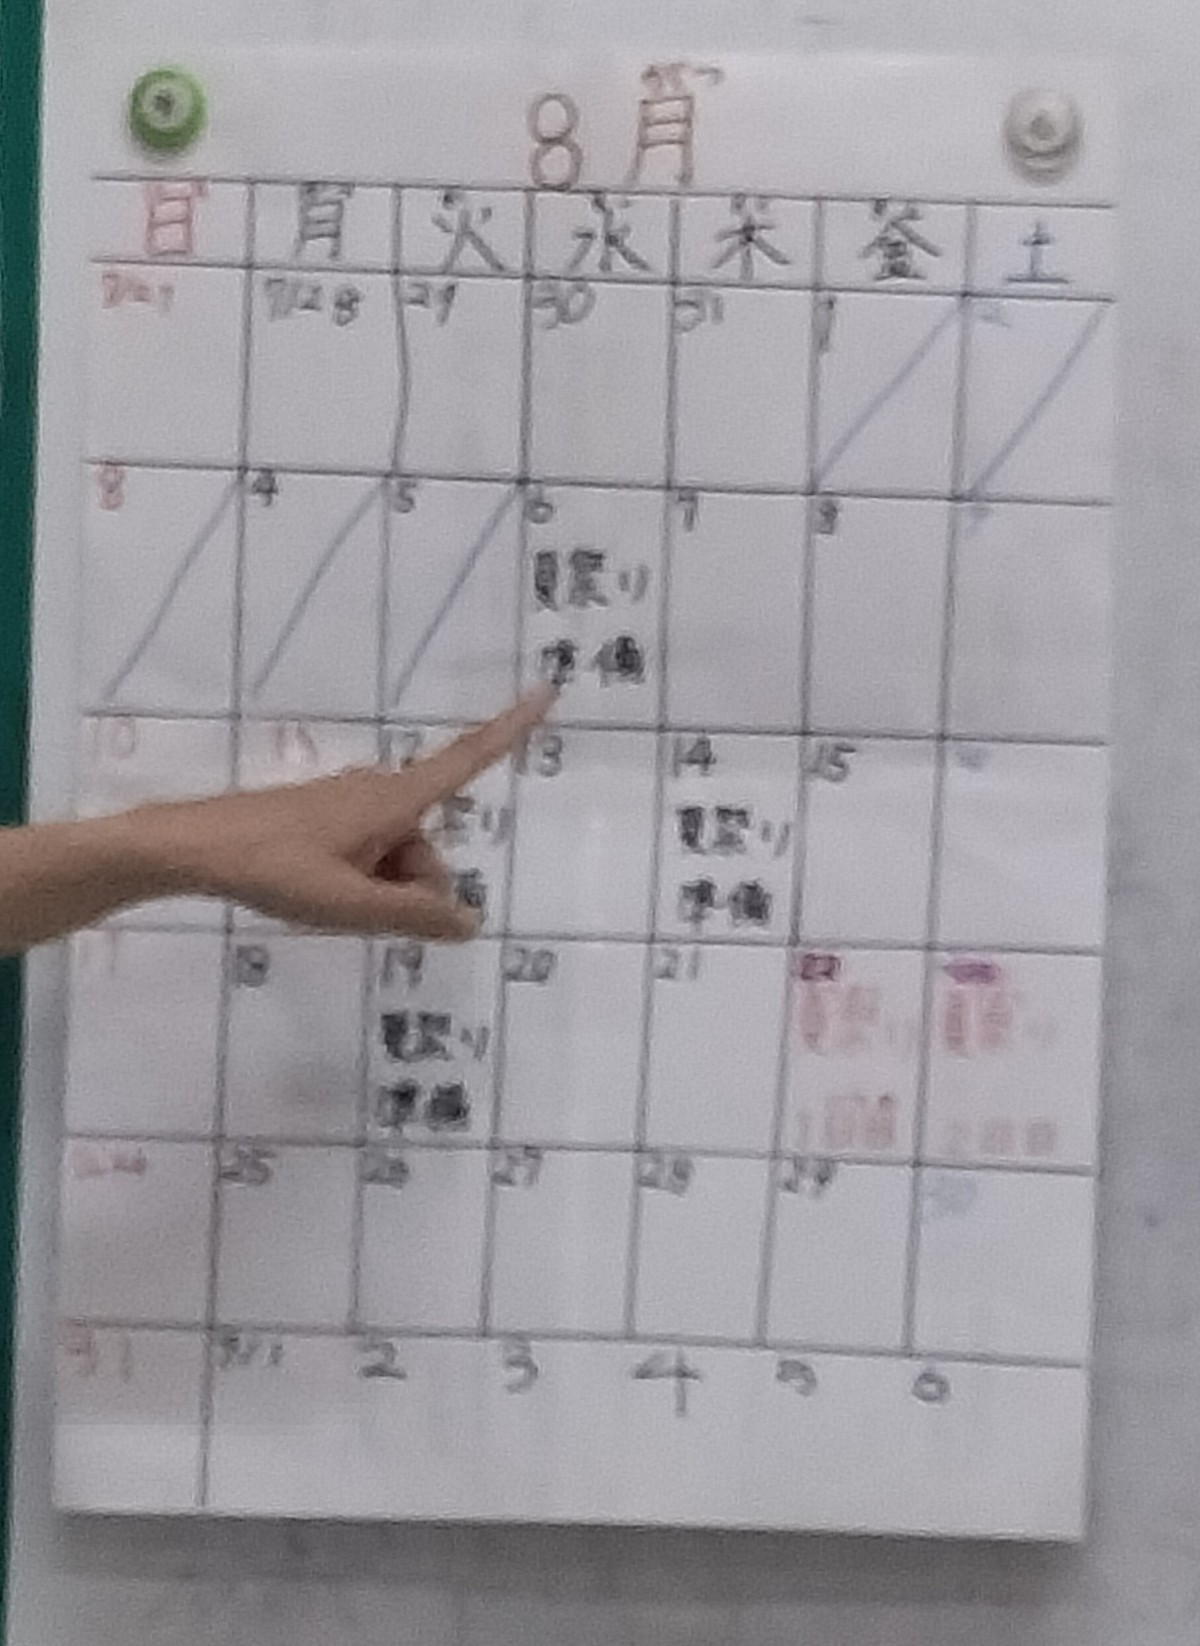 8月
日 月 火 水 木 金 土
7/27 7/28 29 30 31 1 2
3 4 5 6 7 8
夏祭り
準備
10 11 12 13 14 15
祭り 夏祭り
備 準備
17 18 19 20 21 22
夏祭り 夏祭り 夏祭り
準備 1日目 2日目
25 26 27 28 29 30
31 2 3 4 5 6